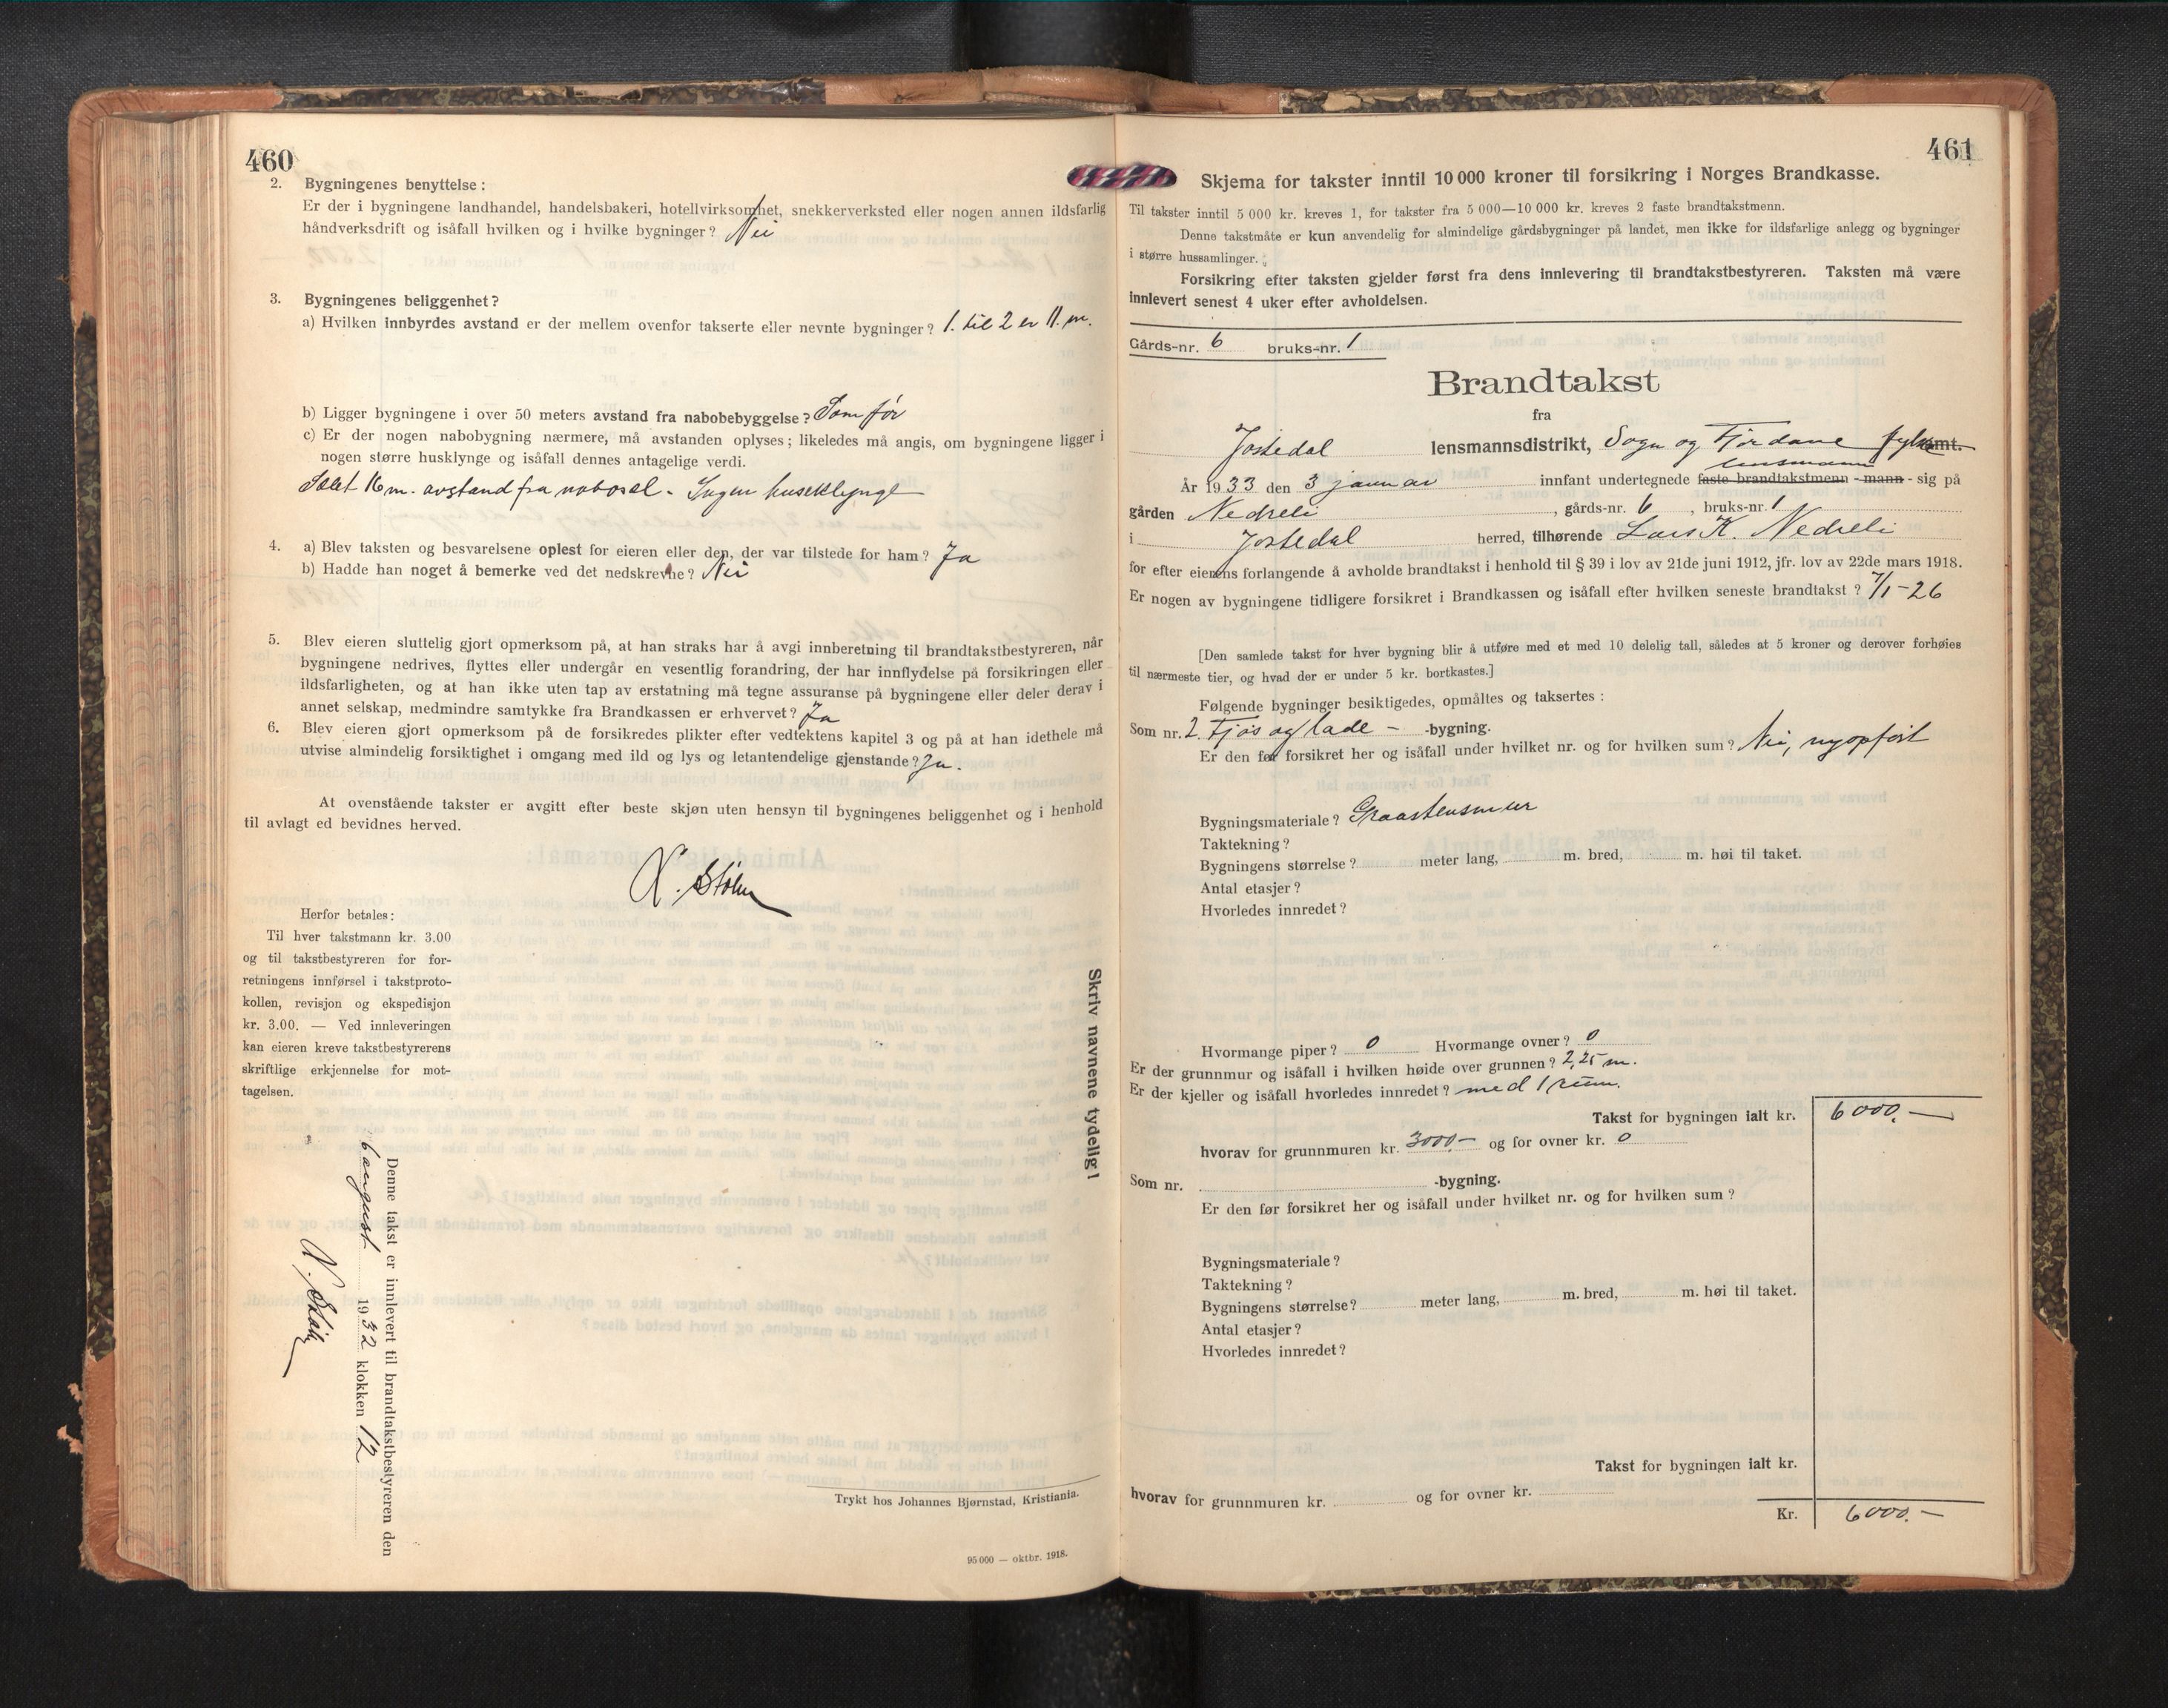 460
2. Bygningenes benyttelse:
Er der i bygningene landhandel, handelsbakeri, hotellvirksomhet, snekkerverksted eller nogen annen ildsfarlig
håndverksdrift og isåfall hvilken og i hvilke bygninger? Nei
3. Bygningenes beliggenhet?
a) Hvilken innbyrdes avstand er der mellem ovenfor takserte eller nevnte bygninger? 1. til 2 er 11. m.
b) Ligger bygningene i over 50 meters avstand fra nabobebyggelse? Som før
c) Er der nogen nabobygning nærmere, må avstanden oplyses; likeledes må angis, om bygningene ligger i
nogen større husklynge og isåfall dennes antagelige verdi.
Selet 16 m. avstand fra nabosel. Ingen huseklynge
4. a) Blev taksten og besvarelsene oplest for eieren eller den, der var tilstede for ham? Ja
b) Hadde han noget å bemerke ved det nedskrevne? Nei
5. Blev eieren sluttelig gjort opmerksom på, at han straks har å avgi innberetning til brandtakstbestyreren, når
bygningene nedrives, flyttes eller undergår en vesentlig forandring, der har innflydelse på forsikringen eller
ildsfarligheten, og at han ikke uten tap av erstatning må tegne assuranse på bygningene eller deler derav i
annet selskap, medmindre samtykke fra Brandkassen er erhvervet? Ja
6. Blev eieren gjort opmerksom på de forsikredes plikter efter vedtektens kapitel 3 og på at han idethele må
utvise almindelig forsiktighet i omgang med ild og lys og letantendelige gjenstande? Ja.
At ovenstående takster er avgitt efter beste skjøn uten hensyn til bygningenes beliggenhet og i henhold
til avlagt ed bevidnes herved.
Herfor betales:
Til hver takstmann kr. 3.00
og til takstbestyreren for for-
retningens innførsel i takstproto-
kollen, revisjon og ekspedisjon
kr. 3.00. — Ved innleveringen
kan eieren kreve takstbestyrerens
skriftlige erkjennelse for mot-
tagelsen.
Skriv navnene tydelig!
Denne takst er innlevert til brandtakstbestyreren den
6 august 1932 klokken 12
Trykt hos Johannes Bjørnstad, Kristiania.
95 000 — oktbr. 1918.
461
Skjema for takster inntil 10 000 kroner til forsikring i Norges Brandkasse.
Til takster inntil 5 000 kr. kreves 1, for takster fra 5 000—10 000 kr. kreves 2 faste brandtakstmenn.
Denne takstmåte er kun anvendelig for almindelige gårdsbygninger på landet, men ikke for ildsfarlige anlegg og bygninger
i større hussamlinger.
Forsikring efter taksten gjelder først fra dens innlevering til brandtakstbestyreren. Taksten må være
innlevert senest 4 uker efter avholdelsen.
Gårds-nr. 6 bruks-nr. 1
Brandtakst
fra
Jostedal lensmannsdistrikt, Sogn og Fjordane fylk amt.
lensmann
År 1933 den 3 januar innfant undertegnede faste brandtakstmenn - mann - sig på
gården Nedreli, gårds-nr. 6, bruks-nr. 1
i Jostedal herred, tilhørende Lars K. Nedreli
for efter eierens forlangende å avholde brandtakst i henhold til § 39 i lov av 21de juni 1912, jfr. lov av 22de mars 1918.
Er nogen av bygningene tidligere forsikret i Brandkassen og isåfall efter hvilken seneste brandtakst? 7/1-26
[Den samlede takst for hver bygning blir å utføre med et med 10 delelig tall, således at 5 kroner og derover forhøies
til nærmeste tier, og hvad der er under 5 kr. bortkastes.]
Følgende bygninger besiktigedes, opmåltes og taksertes:
Som nr. 2. Fjøs og lade - -bygning.
Er den før forsikret her og isåfall under hvilket nr. og for hvilken sum? Nei, nyopført
Bygningsmateriale? Graastensmur
Taktekning?
Bygningens størrelse? meter lang, m. bred, m. høi til taket.
Antal etasjer?
Hvorledes innredet?
Hvormange piper? 0 Hvormange ovner? 0
Er der grunnmur og isåfall i hvilken høide over grunnen? 2,25 m.
Er der kjeller og isåfall hvorledes innredet? med 1 rum.
Takst for bygningen ialt kr. 6000.—
hvorav for grunnmuren kr. 3000.- og for ovner kr. 0
Som nr. -bygning.
Er den før forsikret her og isåfall under hvilket nr. og for hvilken sum?
Bygningsmateriale?
Taktekning?
Bygningens størrelse? meter lang, m. bred, m. høi til taket.
Antal etasjer?
Hvorledes innredet?
Takst for bygningen ialt kr.
hvorav for grunnmuren kr. og for ovner kr.
Kr. 6000.—